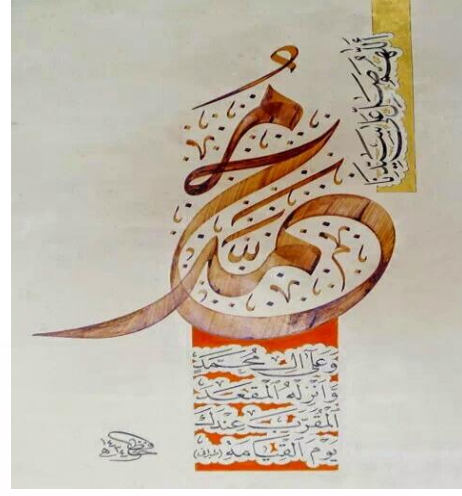 اللهم صل على سيدنا
محمد
وَعَلَى آلِ مُحَمَّدٍ
وَأَنْزِلْهُ الْمَقْعَدَ
الْمُقَرَّبَ عِنْدَكَ
يَوْمَ الْقِيَامَةِ